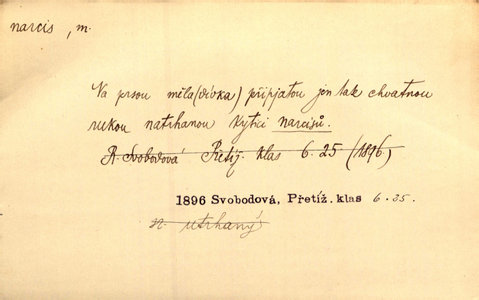 narcis, m.
Na prsou měla (dívka) připjatou jen tak chvatnou
rukou natrhanou kytici narcisů.
R. Svobodová Přetíž. klas 6.25 (1896)
1896 Svobodová, Přetíž. klas 6.25.
n. utrhaný